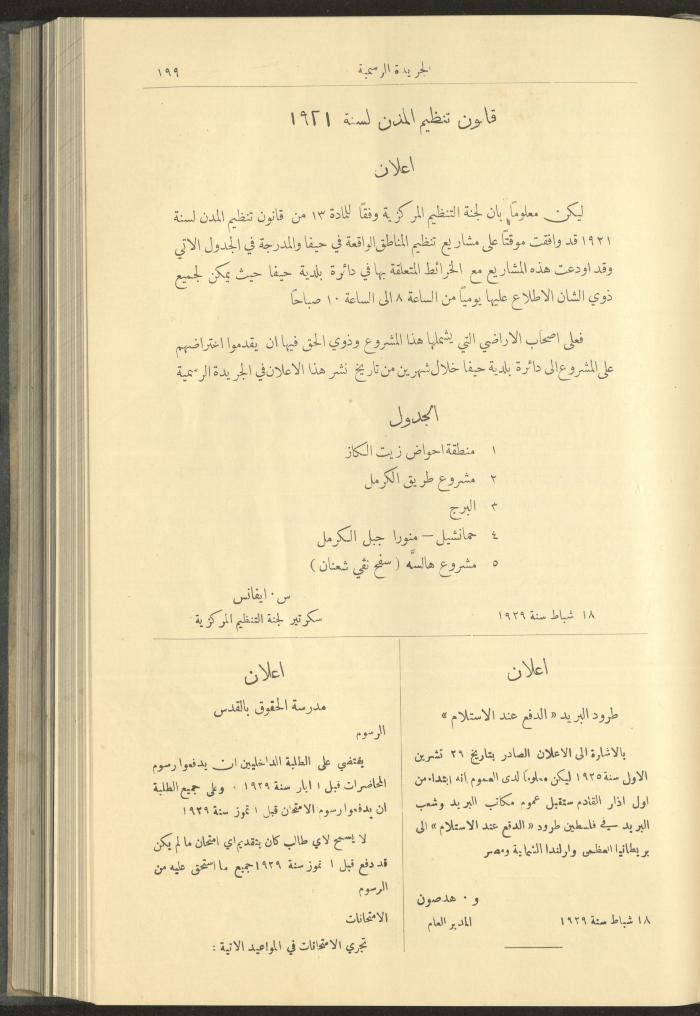 الجريدة الرسمية
١٩٩
قانون تنظيم المدن لسنة ١٩٢١
اعلان
ليكن معلوماً بان لجنة التنظيم المركزية وفقاً للمادة ١٣ من قانون تنظيم المدن لسنة
١٩٢١ قد وافقت موقتاً على مشاريع تنظيم المناطق الواقعة في حيفا والمدرجة في الجدول الاتي
وقد اودعت هذه المشاريع مع الخرائط المتعلقة بها في دائرة بلدية حيفا حيث يمكن لجميع
ذوي الشان الاطلاع عليها يومياً من الساعة ٨ الى الساعة ١٠ صباحاً
فعلى اصحاب الاراضي التي يشملها هذا المشروع وذوي الحق فيها ان يقدموا اعتراضهم
على المشروع الى دائرة بلدية حيفا خلال شهرين من تاريخ نشر هذا الاعلان في الجريدة الرسمية
الجدول
١ منطقة احواض زيت الكاز
٢ مشروع طريق الكرمل
٣ البرج
٤ حمانشيل — منورا جبل الكرمل
٥ مشروع هالسه (سفح نڤي شعنان)
س . ايفانس
١٨ شباط سنة ١٩٢٩
سكوتير لجنة التنظيم المركزية
اعلان
طرود البريد « الدفع عند الاستلام »
بالاشارة الى الاعلان الصادر بتاريخ ٢٩ تشرين
الاول سنة ١٩٢٥ ليكن معلوماً لدى العموم انه ابتداء من
اول اذار القادم ستقبل عموم مكاتب البريد وشعب
البريد في فلسطين طرود « الدفع عند الاستلام » الى
بريطانيا العظمى وارلندا الشمالية ومصر
و . هدصون
١٨ شباط سنة ١٩٢٩
المدير العام
اعلان
مدرسة الحقوق بالقدس
الرسوم
يقتضي على الطلبة الداخليين ان يدفعوا رسوم
المحاضرات قبل ١ ايار سنة ١٩٢٩ . وعلى جميع الطلبة
ان يدفعوا رسوم الامتحان قبل ١ تموز سنة ١٩٢٩
لا يسمح لاي طالب كان بتقديم اي امتحان ما لم يكن
قد دفع قبل ١ تموز سنة ١٩٢٩ جميع ما استحق عليه من
الرسوم
الامتحانات
تجري الامتحانات في المواعيد الاتية :